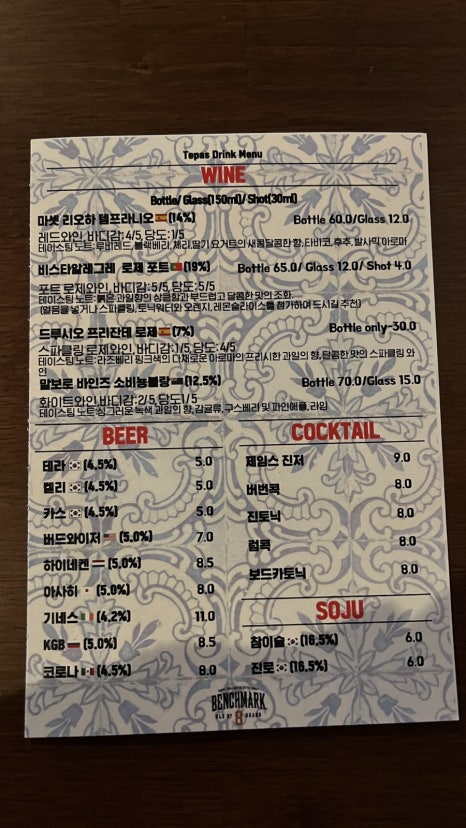 Tapas Drink Menu
WINE
Bottle/ Glass(150ml)/ Shot(30ml)
마쏏 리오하 템프라니오 (14%) Bottle 60.0/Glass 12.0
레드와인, 바디감:4/5, 당도:1/5
테이스팅 노트: 루비레드, 블랙베리, 체리,딸기 요거트의 새콤달콤한 향, 타바코, 후추, 발사믹 아로마
비스타알레그레 로제 포트 (19%) Bottle 65.0/ Glass 12.0/ Shot 4.0
포트 로제와인, 바디감: 5/5, 당도: 5/5
테이스팅 노트: 붉은 과일향의 싱그함과 부드럽고 달콤한 맛의 조화.
(얼음을 넣거나 스파클링,토닉워터와 오렌지, 레몬슬라이스를 첨가하여 드시길 추천)
드루시오 프리잔테 로제 (7%) Bottle only-30.0
스파클링 로제와인, 바디감:1/5, 당도: 4/5
테이스팅 노트: 라즈베리 핑크색의 다채로운 아로마의 프리시한 과일의 향, 달콤한 맛의 스파클링 와
인
말보로 바인즈 소비뇽블랑 (12.5%) Bottle 70.0/Glass 15.0
화이트와인,바디감:2/5, 당도1/5
테이스팅 노트:싱그러운 녹색 과일의 향, 감귤류, 구스베리 및 파인애플, 라임
BEER
테라 (4.5%) 5.0
켈리 (4.5%) 5.0
카스 (4.5%) 5.0
버드와이저 (5.0%) 7.0
하이네켄 (5.0%) 8.5
아사히 (5.0%) 8.0
기네스 (4.2%) 11.0
KGB (5.0%) 8.5
코로나 (4.5%) 8.0
COCKTAIL
제임스 진저 9.0
버번콕 8.0
진토닉 8.0
럼콕 8.0
보드카토닉 8.0
SOJU
참이슬 (16.5%) 6.0
진로 (16.5%) 6.0
BENCHMARK
OLD Nº 8 BRAND